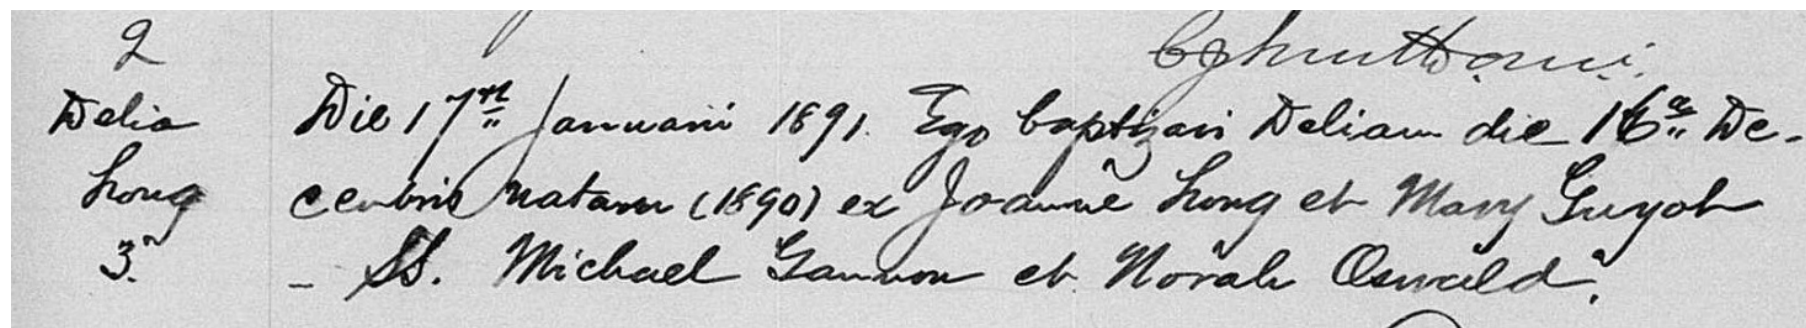 2
Delia Die 17ma Januarii 1891. Ego baptizavi Deliam die 16a De-
Long cembris natam (1890) ex Joanne Long et Mary Guyot
3. - SS. Michael Gannon et Norah Oswald.